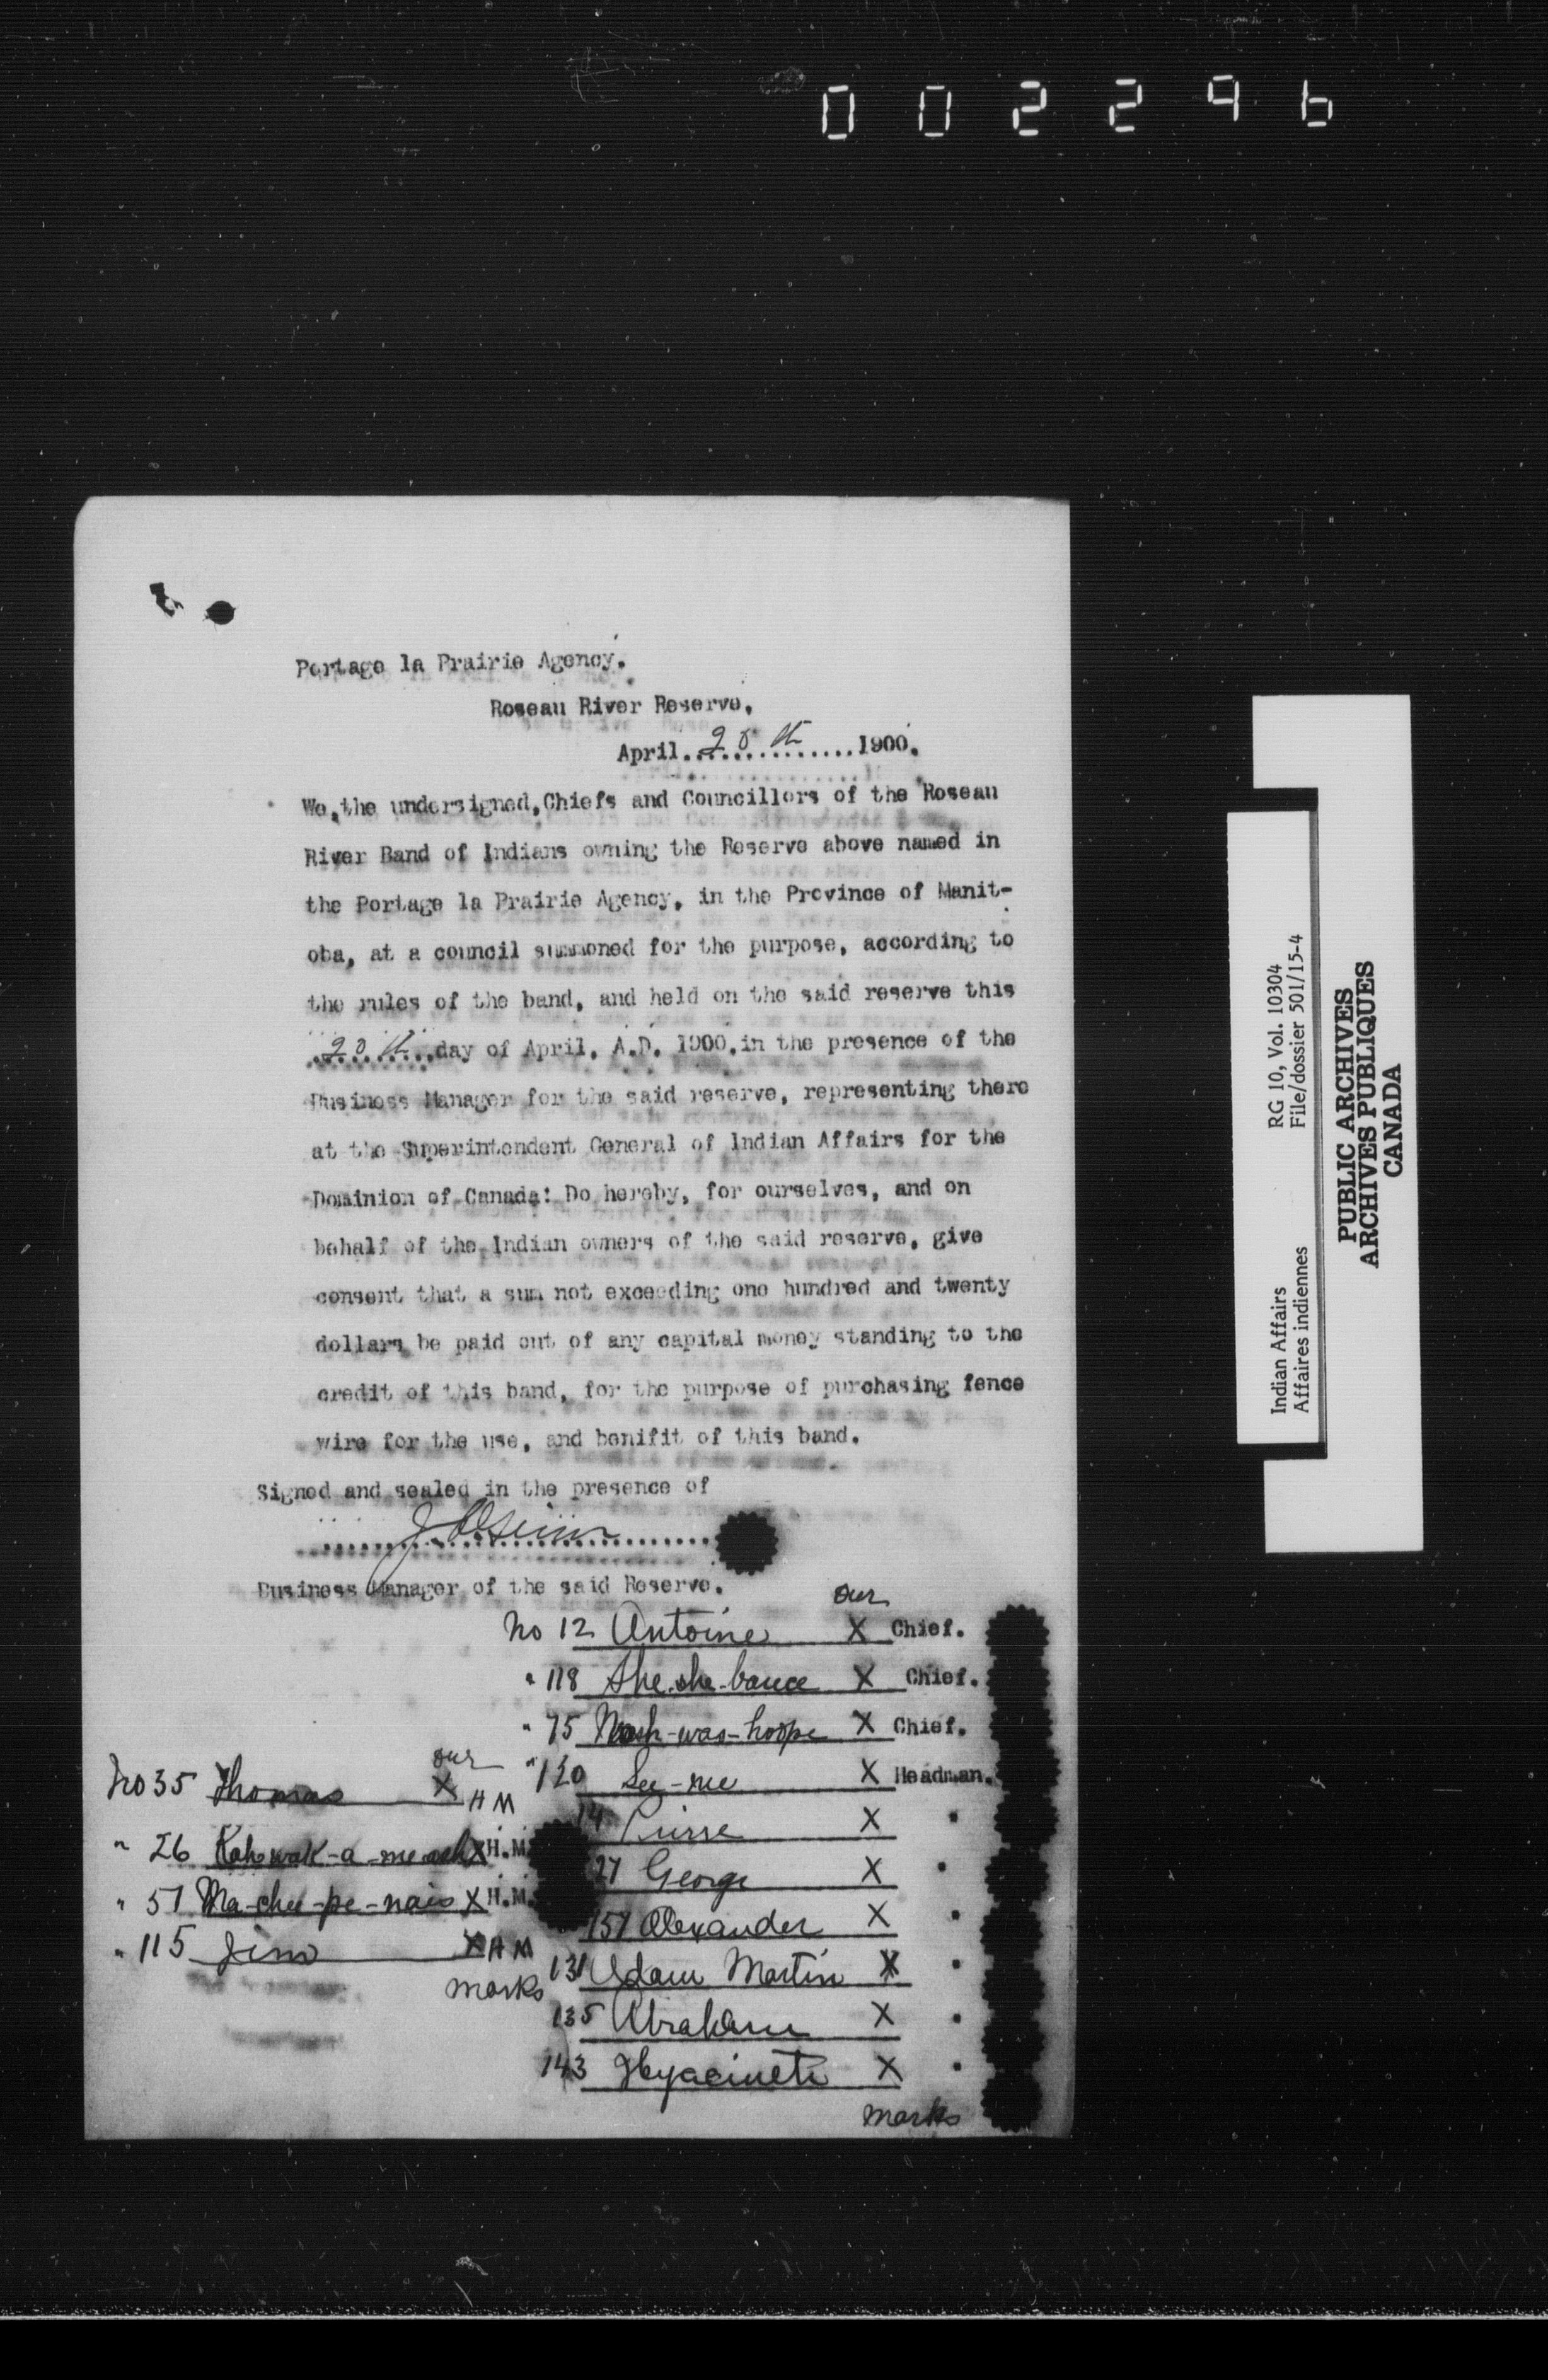 002296
Portage la Prairie Agency.
Roseau River Reserve,
April. 20th 1900.
We, the undersigned, Chiefs and Councillors of the Roseau
River Band of Indians owning the Reserve above named in
the Portage la Prairie Agency, in the Province of Manit-
oba, at a council summoned for the purpose, according to
the rules of the band, and held on the said reserve this
20th day of April, A.D. 1900, in the presence of the
Business Manager for the said reserve, representing there
at the Superintendent General of Indian Affairs for the
Dominion of Canada: Do hereby, for ourselves, and on
behalf of the Indian owners of the said reserve, give
consent that a sum not exceeding one hundred and twenty
dollars be paid out of any capital money standing to the
credit of this band, for the purpose of purchasing fence
wire for the use, and benifit of this band.
Signed and sealed in the presence of
Business Manager of the said Reserve.
our
No 12 Antoine X Chief.
" 118 She-she-bance X Chief.
" 75 Nash-was-hoope X Chief.
" 120 See-me X Headman.
14 Pierre X "
27 George X "
157 Alexander X "
131 Adam Martin X "
135 Abraham X "
143 Hyacinete X "
marks
our
No 35 Thomas X H M
" 26 Kah-wak-a-me-ash X H.M.
" 57 Ma-chee-pe-nais X H.M.
" 115 Jim X H M
marks
Indian Affairs RG 10, Vol. 10304
Affaires indiennes File/dossier 501/15-4
PUBLIC ARCHIVES
ARCHIVES PUBLIQUES
CANADA